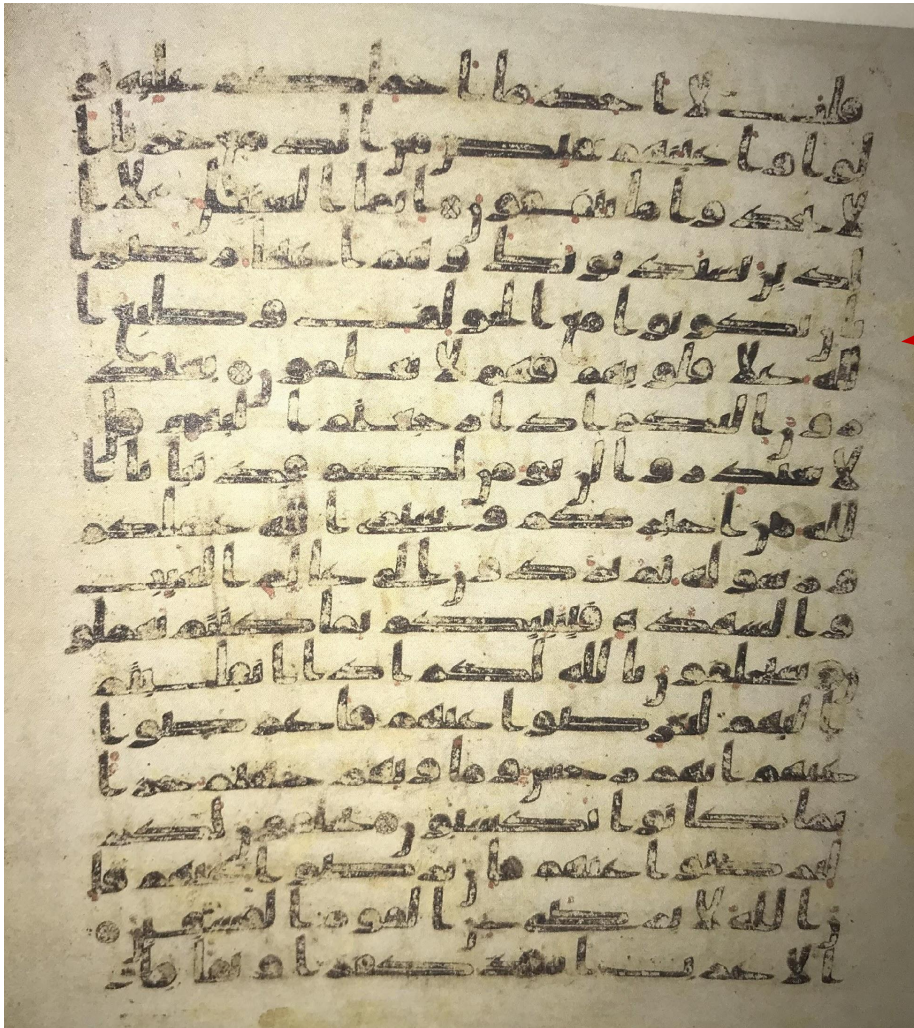 قلت لا اجد ما احملكم عليه تو
لوا واعينهم تفيض من الدمع حزنا ا
لا يجدوا ما ينفقون انما السبيل علا ا
لذين يستذنونك وهم اغنيا رضوا
بان يكونوا مع الخولف وطبع ا
لله علا قلوبهم فهم لا يعلمون يعتذ
رون اليكم اذا رجعتم اليهم قل
لا تعتذروا لن نومن لكم قد نبانا ا
لله من اخباركم وسيرى الله عملكم
ورسوله ثم تردون الى علم الغيب
والشهدة فينبيكم بما كنتم تعملو
ن سيحلفون بالله لكم اذا انقلبتم
اليهم لتعرضوا عنهم فاعرضوا
عنهم انهم رجس وماويهم جهنم جزا
بما كانوا يكسبون يحلفون لكم
لترضوا عنهم فان ترضوا عنهم فا
ن الله لا يرضى عن القوم الفسقين
الاعرب اشد كفرا ونفاقا